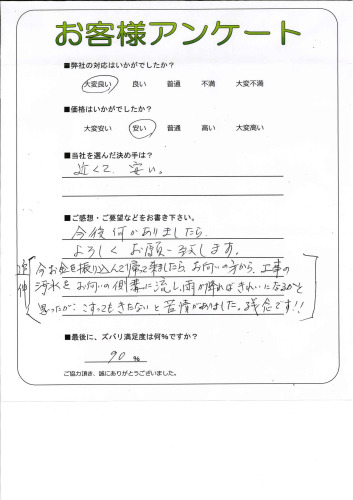 お客様アンケート
■弊社の対応はいかがでしたか?
大変良い 良い 普通 不満 大変不満
■価格はいかがでしたか?
大変安い 安い 普通 高い 大変高い
■当社を選んだ決め手は?
近くて、安い。
■ご感想・ご要望などをお書き下さい。
今後何かありましたら
よろしくお願い致します。
追伸
今お金を振り込んで帰って来ましたら、お向いの方から、工事の
汚水をお向いの側溝に流し、雨が降ればきれいになるかと
思ったが、こすってもきたないと苦情がありました。残念です!!
■最後に、ズバリ満足度は何%ですか?
90 %
ご協力頂き、誠にありがとうございました。